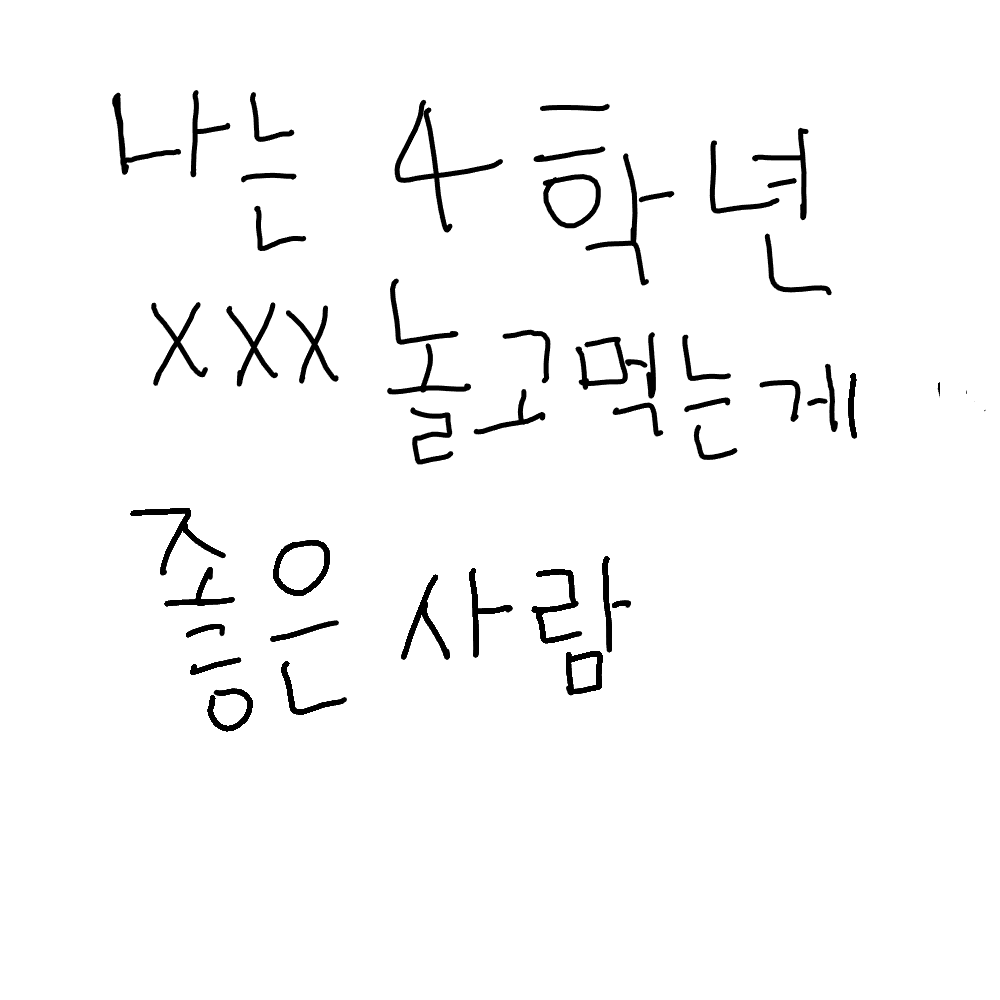 나는 4학년
XXX 놀고먹는게
좋은 사람